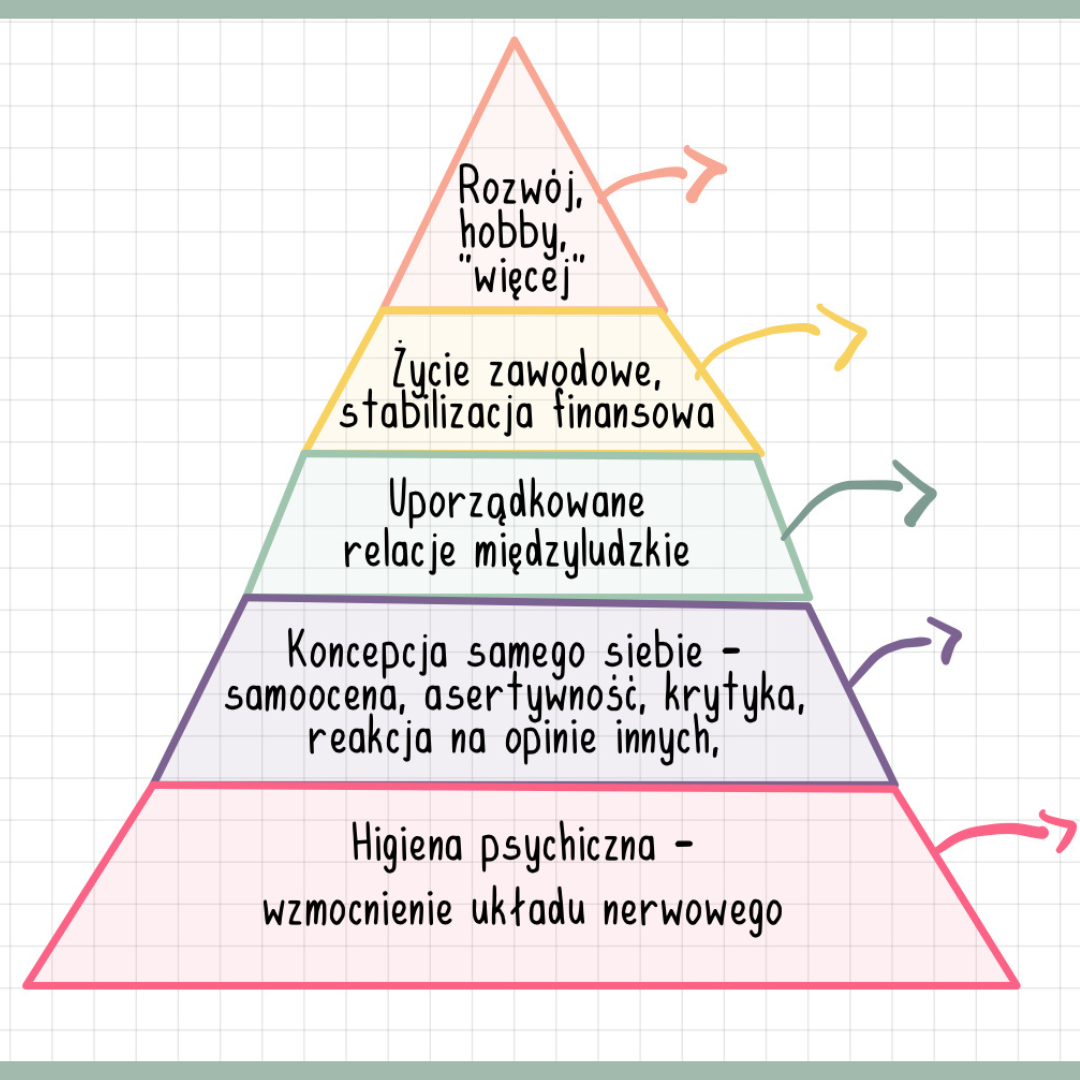 Rozwój,
hobby,
"więcej"
Życie zawodowe,
stabilizacja finansowa
Uporządkowane
relacje międzyludzkie
Koncepcja samego siebie -
samoocena, asertywność, krytyka,
reakcja na opinie innych,
Higiena psychiczna -
wzmocnienie układu nerwowego